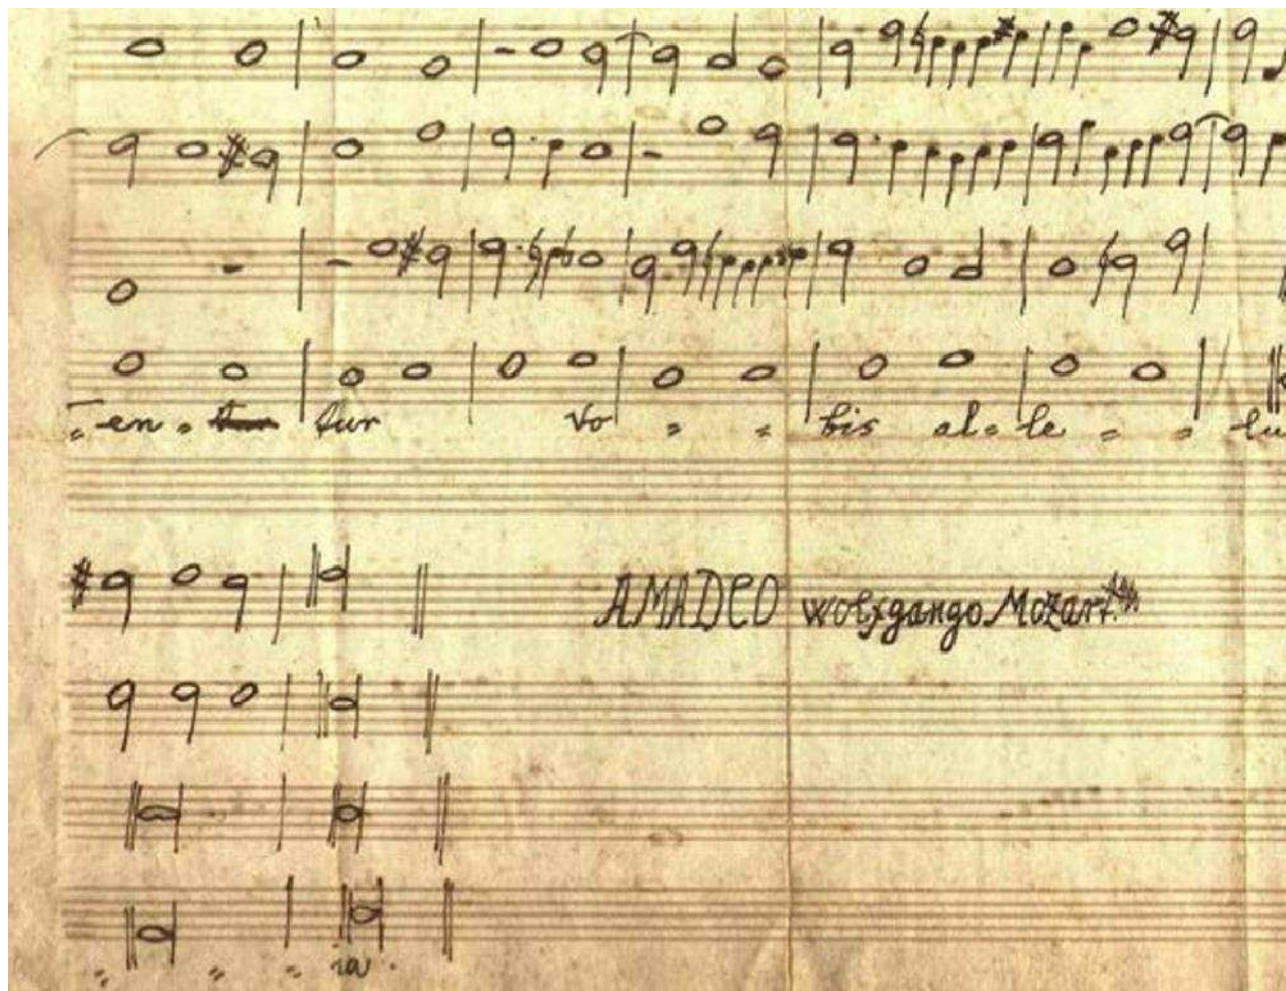 en - tur vo - - bis al - le - - lu
AMADEO wolfgango Mozart
- - - ia.